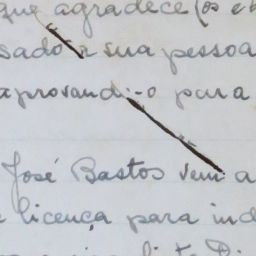 que agradece (os
sado a sua pessoa
aprovando-o para
José Bastos vem a
licença para ind